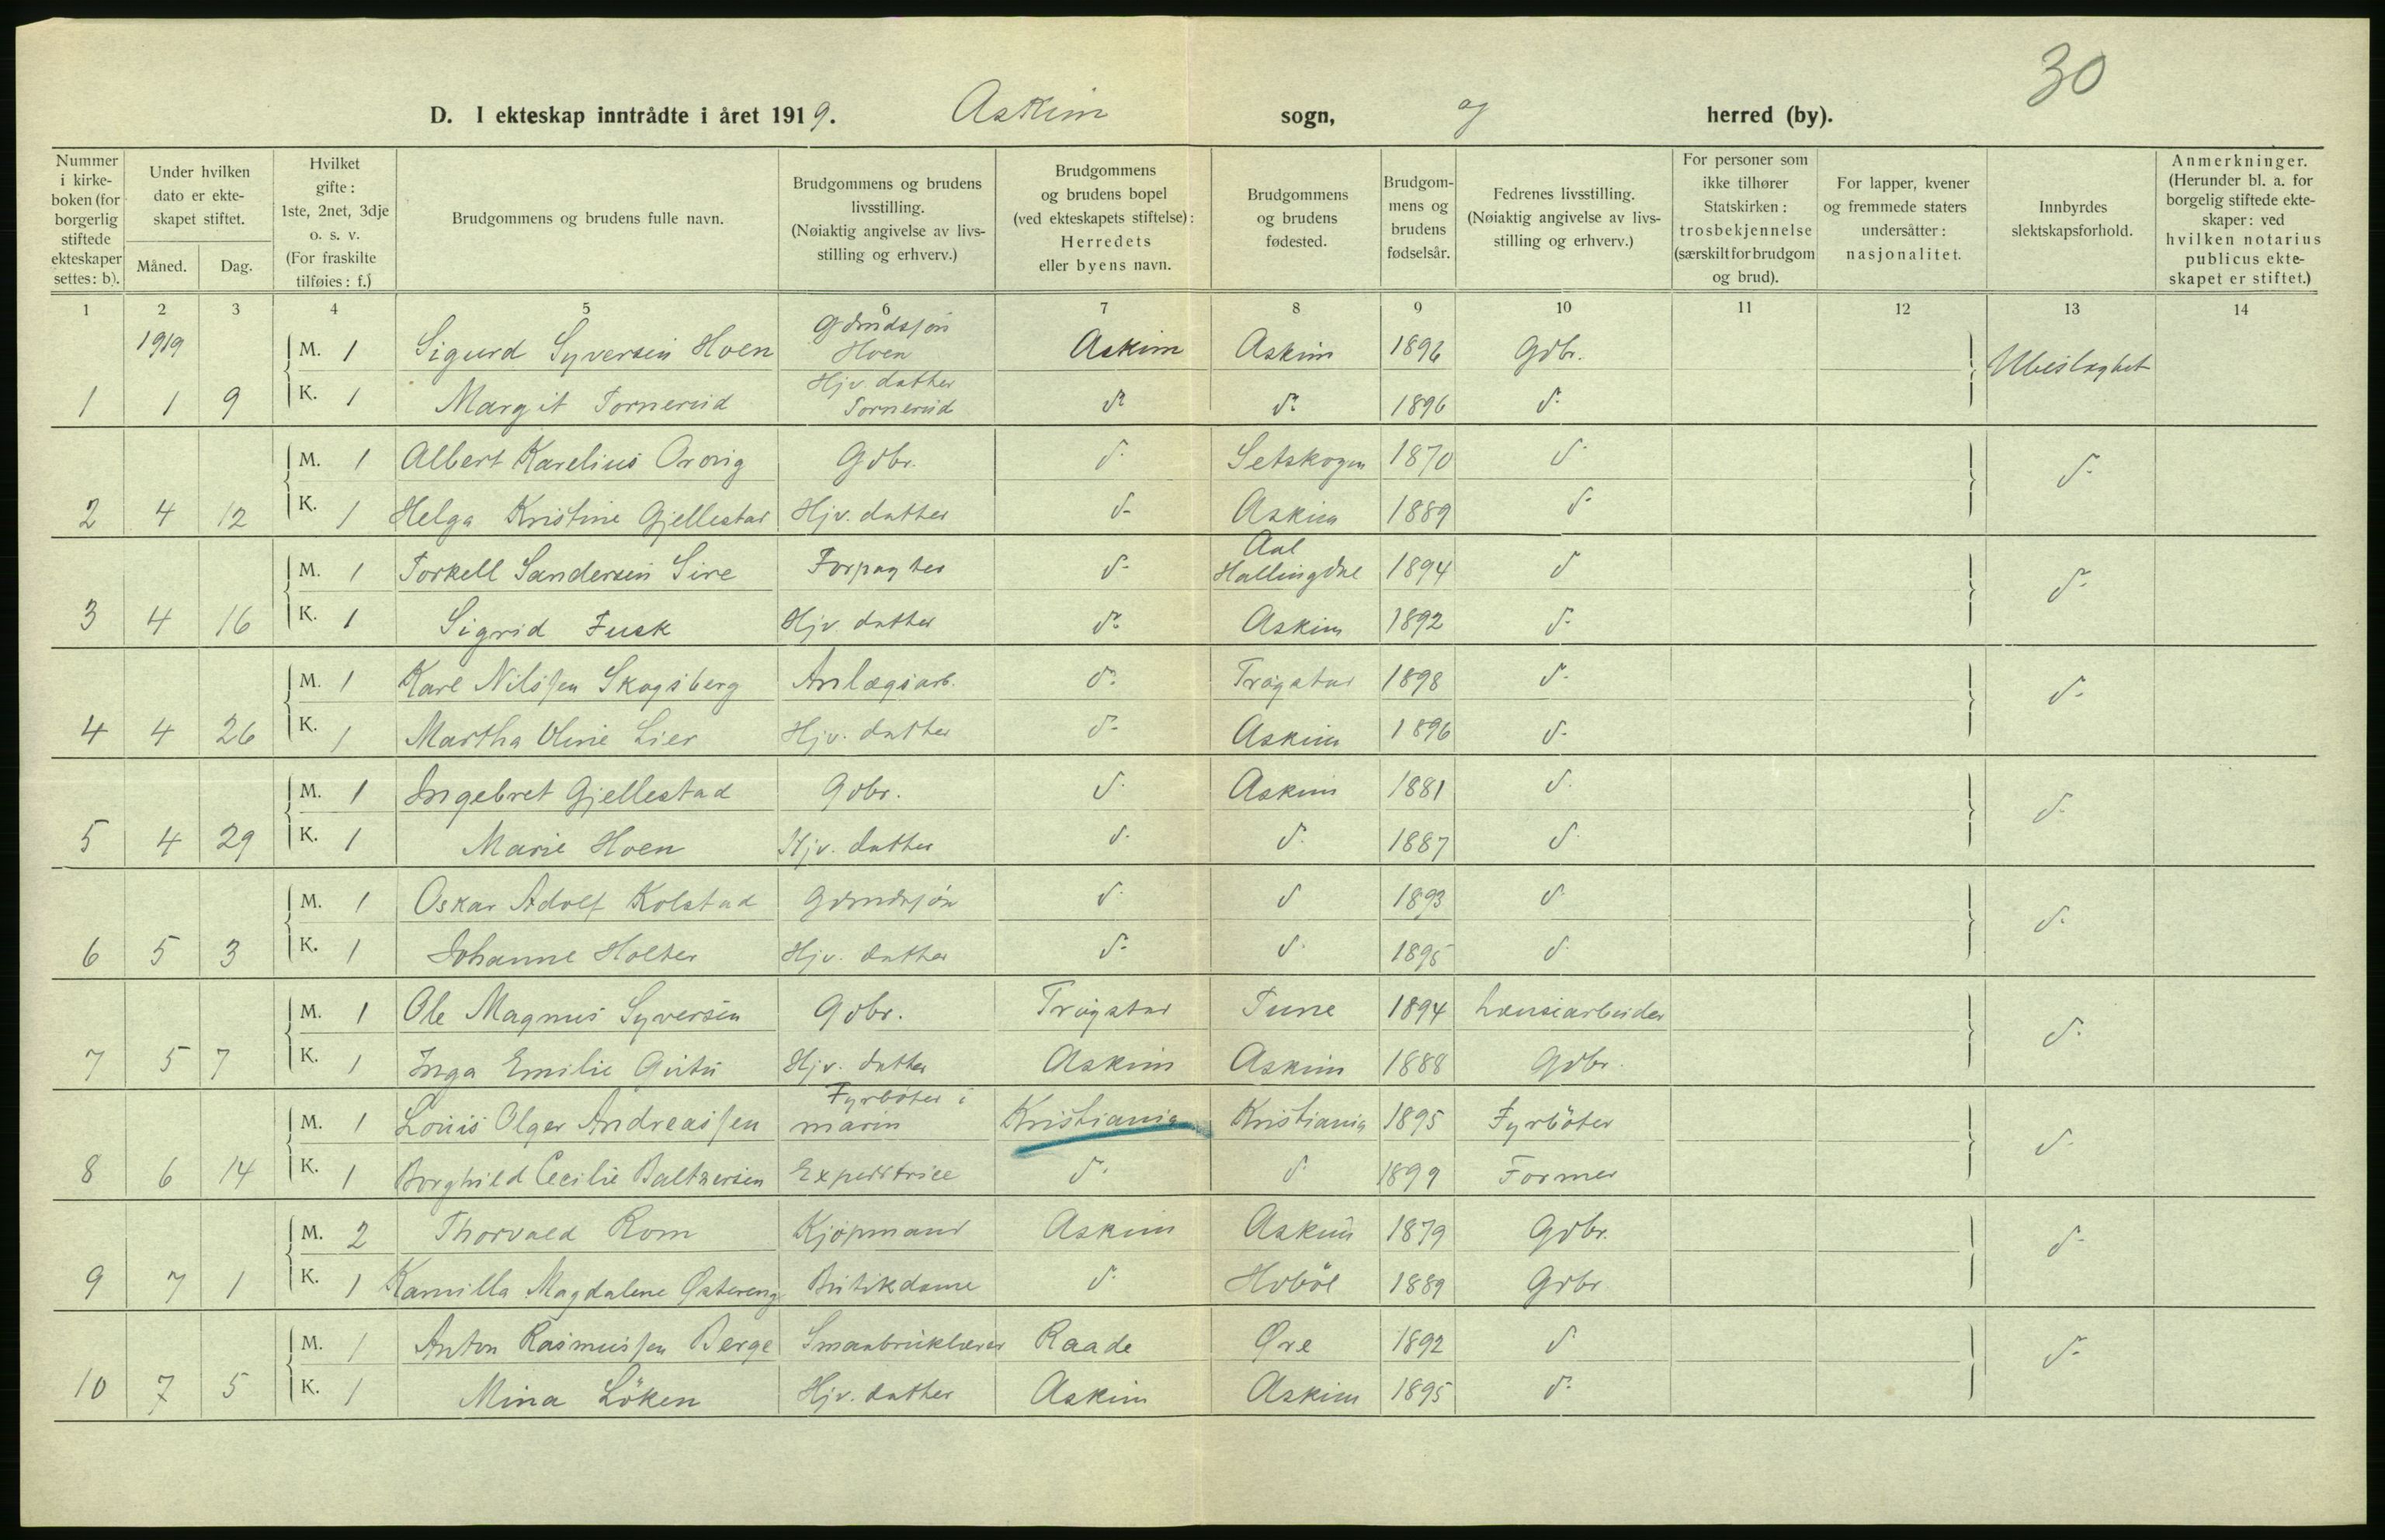 30
D. I ekteskap inntrådte i året 1919. Askim sogn, og herred (by).
Nummer i kirkeboken (for borgerlig stiftede ekteskaper settes: b).
Under hvilken dato er ekteskapet stiftet.
Måned. Dag.
Hvilket gifte: 1ste, 2net, 3dje o. s. v. (For fraskilte tilføies: f.)
Brudgommens og brudens fulle navn.
Brudgommens og brudens livsstilling. (Nøiaktig angivelse av livsstilling og erhverv.)
Brudgommens og brudens bopel (ved ekteskapets stiftelse): Herredets eller byens navn.
Brudgommens og brudens fødested.
Brudgommens og brudens fødselsår.
Fedrenes livsstilling. (Nøiaktig angivelse av livsstilling og erhverv.)
For personer som ikke tilhører Statskirken: trosbekjennelse (særskilt for brudgom og brud).
For lapper, kvener og fremmede staters undersåtter: nasjonalitet.
Innbyrdes slektskapsforhold.
Anmerkninger. (Herunder bl. a. for borgelig stiftede ekteskaper: ved hvilken notarius publicus ekteskapet er stiftet.)
1 2 3 4 5 6 7 8 9 10 11 12 13 14
1919 M. 1 Sigurd Syversen Hoen Gdmdssøn Hoen Askim Askim 1896 Gdbr. Ubeslagtet
1 1 9 K. 1 Margit Tornerud Hjv. datter Tornerud d: d: 1896 d:
M. 1 Albert Karelius Gdbr. d: Setskogen 1870 d: d:
2 4 12 K. 1 Helga Kristine Gjellestad Hjv. datter d: Askim 1889 d:
M. 1 Torkell Sandersen Sire Forpagter d: Aal Hallingdal 1894 d d:
3 4 16 K. 1 Sigrid Fusk Hjv. datter d: Askim 1892 d:
M. 1 Karl Nilssen Skogsberg Anlægsarb. d: Trøgstad 1898 d: d:
4 4 26 K. 1 Martha Oline Lier Hjv. datter d: Askim 1896 d:
M. 1 Ingebret Gjellestad Gdbr. d: Askim 1881 d: d:
5 4 29 K. 1 Marie Hoen Hjv. datter d: d: 1887 d:
M. 1 Oskar Adolf Kolstad Gdmdssøn d: d 1893 d: d:
6 5 3 K. 1 Johanne Holter Hjv. datter d: d: 1895 d:
M. 1 Ole Magnus Syversen Gdbr. Trøgstad Tune 1894 Lænsearbeider d:
7 5 7 K. 1 Inga Emilie Hjv. datter Askim Askim 1888 Gdbr.
M. 1 Louis Olger Andreassen Fyrbøter i marin Kristiania Kristiania 1895 Fyrbøter d:
8 6 14 K. 1 Borghild Cecilie Baltzersen Expeditrice d: d: 1899 Former
M. 2 Thorvald Rom Kjøpmand Askim Askim 1879 Gdbr. d:
9 7 1 K. 1 Kamilla Magdalene Østereng Butikdame d: Hobøl 1889 Gdbr
M. 1 Anton Rasmussen Berge Smaabruklærer Raade Øre 1892 d: d:
10 7 5 K. 1 Mina Løken Hjv. datter Askim Askim 1895 d: